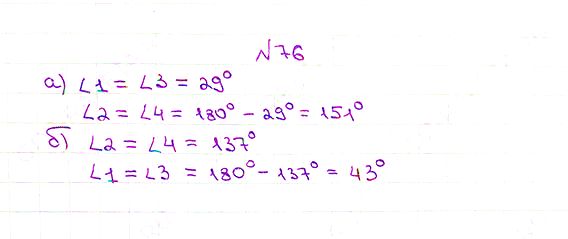 №76
а) ∠1 = ∠3 = 29°
∠2 = ∠4 = 180° - 29° = 151°
б) ∠2 = ∠4 = 137°
∠1 = ∠3 = 180° - 137° = 43°